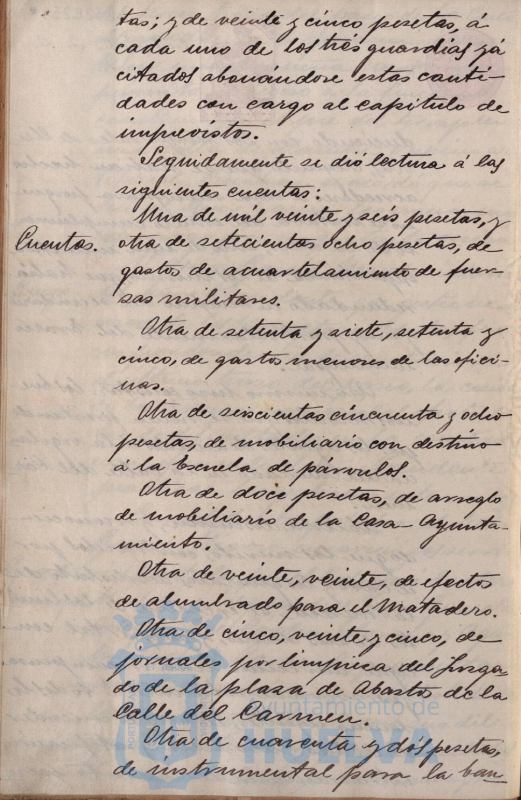 tas; y de veinte y cinco pesetas, á
cada uno de los trés guardias yá
citados abonándose estas canti-
dades con cargo al capitulo de
imprevistos.
Seguidamente se dió lectura á las
siguientes cuentas:
Una de mil veinte y seis pesetas, y
Cuentas.
otra de setecientas ocho pesetas, de
gastos de acuartelamiento de fuer-
sas militares.
Otra de setenta y siete, setenta y
cinco, de gastos menores de las ofici-
nas.
Otra de seiscientas cincuenta y ocho
pesetas, de mobiliario con destino
á la Escuela de párvulos.
Otra de doce pesetas, de arreglo
de mobiliario de la Casa-Ayunta-
miento.
Otra de veinte, veinte, de efectos
de alumbrado para el Matadero.
Otra de cinco, veinte y cinco, de
jornales por limpieca del Juzga-
do de la plaza de Abasto de la
Calle del Carmen.
Otra de cuarenta y dós pesetas,
de instrumental para la ban
Ayuntamiento de
HUELVA